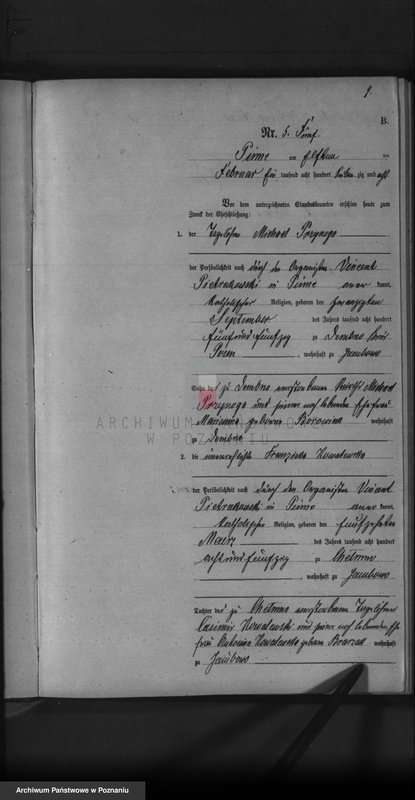 9.
B.
Nr. 5. Fünf.
Pinne am elften ten
Februar Ein tausend acht hundert sieben zig und acht
Vor dem unterzeichneten Standesbeamten erschien heute zum
Zweck der Eheschließung:
1. der Tagelöhner Michael Przynoga
der Persönlichkeit nach durch den Organisten Vincent
Pietrakowski in Pinne aner kannt,
katholischer Religion, geboren den
September des Jahres tausend acht hundert
fünfundfünfzig zu Dembno Kreis
Posen, wohnhaft zu Jacubowo
Sohn des zu Dembno verstorbenen Wirth Michael
Przynoga und seiner noch lebenden Ehefrau
Marianna geborne wohnhaft
zu Dembno
2. die unverehelichte Franziska Kowalewska
der Persönlichkeit nach durch den Organisten Vincent
Pietrakowski in Pinne aner kannt,
katholischer Religion, geboren den fünfzehnten
Maerz des Jahres tausend acht hundert
achtundfünfzig zu Chelmno
, wohnhaft zu Jacubowo
Tochter des zu Chelmno verstorbenen Tagelöhner
Casimir Kowalewski und seiner noch lebenden Ehe
frau Antonina Kowalewska geboren wohnhaft
zu Jacubowo
ARCHIWUM PAŃSTWOWE
W POZNANIU
Archiwum Państwowe w Poznaniu